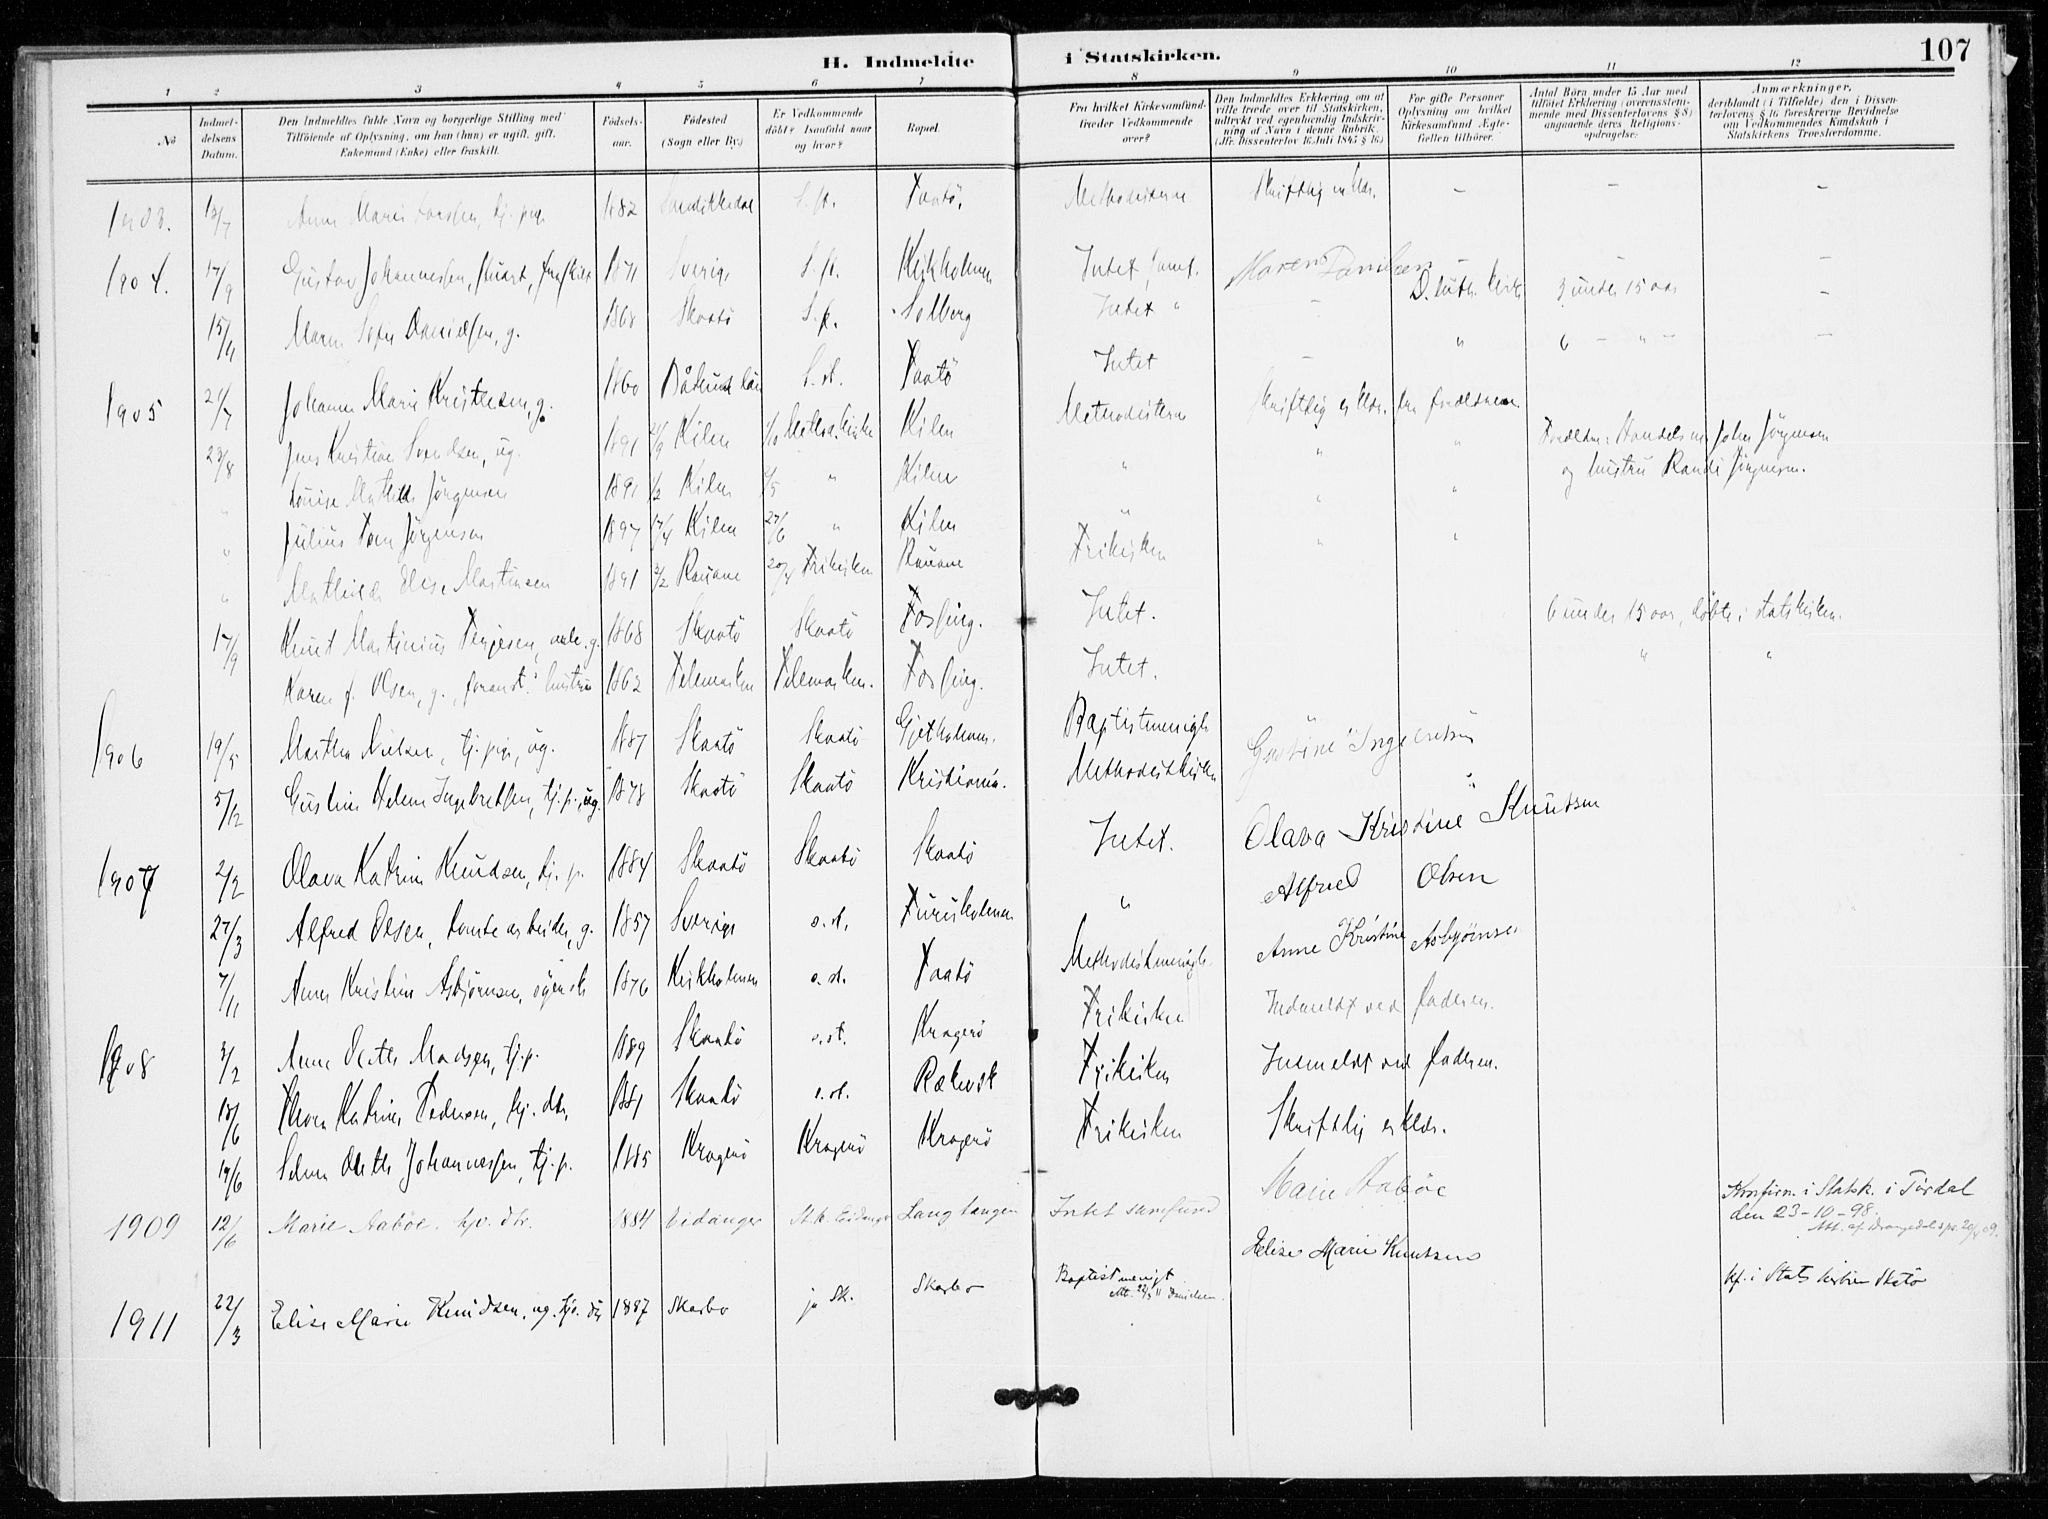 H. Indmeldte i Statskirken.
107
1 2 3 4 5 6 7 8 9 10 11 12
No
Indmeldelsens Datum.
Den Indmeldtes fulde Navn og borgerlige Stilling med Tilföiende af Oplysning, om han (hun) er ugift, gift, Enkemand (Enke) eller fraskilt.
Födselsaar.
Födested (Sogn eller By.)
Er Vedkommende döbt? Isaafald naar og hvor?
Bopæl.
Fra hvilket Kirkesamfund træder Vedkommende over?
Den Indmeldtes Erklæring om at ville træde over til Statskirken, udtrykt ved egenhændig Indskrivning af Navn i denne Rubrik. (Jfr. Dissenterlov 16 Juli 1845 § 16.)
For gifte Personer Oplysning om hvilket Kirkesamfund Ægtefellen tilhörer.
Antal Börn under 15 Aar med tilföiet Erklæring i overensstemmende med Dissenterlovens § 8) angaaende deres Religionsopdragelse.
Anmærkninger, deriblandt (i Tilfælde) den i Dissenterlovens § 16 foreskrevne Bevidnelse om Vedkommendes Kundskab i Statskirkens Troeslærdomme.
1903. 13/7 Anna Marie 1882 Sannikedal Taatö. Methodisterne Skriftlig erklær. – – –
1904. 17/9 Gustav Johannessen, 1871 Sverige Kirkholmen Intet samf. Maren Danielsen – – –
15/11 Maren Sofie Danielsen, g. 1868 Skaatö Solberg Intet " – D. luth. kirke 3 under 15 aar –
1905 21/7 Johanne Marie Kristensen, g. 1860 Taatö Intet – " 6 – " – –
23/8 Jens Kristian Svendsen, ug. 1891 Kilen Kilen Methodisterne Skriftlig erklær. fra forældrene.
" Louise Mathilde Jörgensen 1891 Kilen " Kilen " " " Forældre: Handelsm. John Jörgensen og hustru Randi Jörgensen.
" Julius Tom Jörgensen 1897 17/4 Kilen 27/6 " Kilen " " "
" Mathilde Elise Martinsen 1891 Rauane Frikirken Rauane Frikirken " "
17/9 Knut Martinius Terjesen, g. 1868 Skaatö Skaatö Fossing. Intet. 6 under 15 aar, döbte i statskirken.
Karen f. Olsen, g., foranst.' hustru 1862 Telemarken Telemarken. Fossing. Intet. " "
1906 19/5 Martha Nielsen, tj. pige, ug. 1887 Skaatö Skaatö Gjetholmen. Baptistmenigh "
5/12 Gustine Helene Ingebretsen, tj. p., ug. 1878 Skaatö Skaatö Kristiania. Methodistkirken Gustine Ingebretsen
1907 2/2 Olava Katrine Knudsen, tj. p. 1884 Skaatö Skaatö Skaatö Intet. Olava Kristine Knutsen
27/3 Alfred Olsen, tomtearbeider, g. 1857 Sverige o. st. Furuholmen " Alfred Olsen
7/11 Anne Kristine Asbjörnsen, 1876 Kirkholmen o. st. Taatö Methodistmenigh. Anne Kristine Asbjörnsen
1908 3/2 Anne Grethe Madsen, tj. p. 1889 Skaatö o. st. Kragerö Frikirken Indmeldt ved faderen.
13/6 Thora Katrine Pedersen, tj. dtr. 1881 Skaatö o. st. Frikirken Indmeldt ved faderen.
19/6 Johannessen, tj. p. 1885 Kragerö Kragerö Kragerö Frikirken Skriftlig erklær.
1909 12/6 Marie Aaböe. tjv. dtr. 1884 Eidanger St. k. Eidanger Langtangen Intet samfund Marie Aaböe Konfirm. i Statsk. i Tördal den 23-10-98. Att. af Drangedals spr.
1911 22/3 Elise Marie Knudsen, ug. tjv. 1887 Skarbo ja Sk. Skarbo Baptist menigt Att. 22/3 11 Danielsen. Elise Marie Knutsen kf. i Stats kirken Skåtö